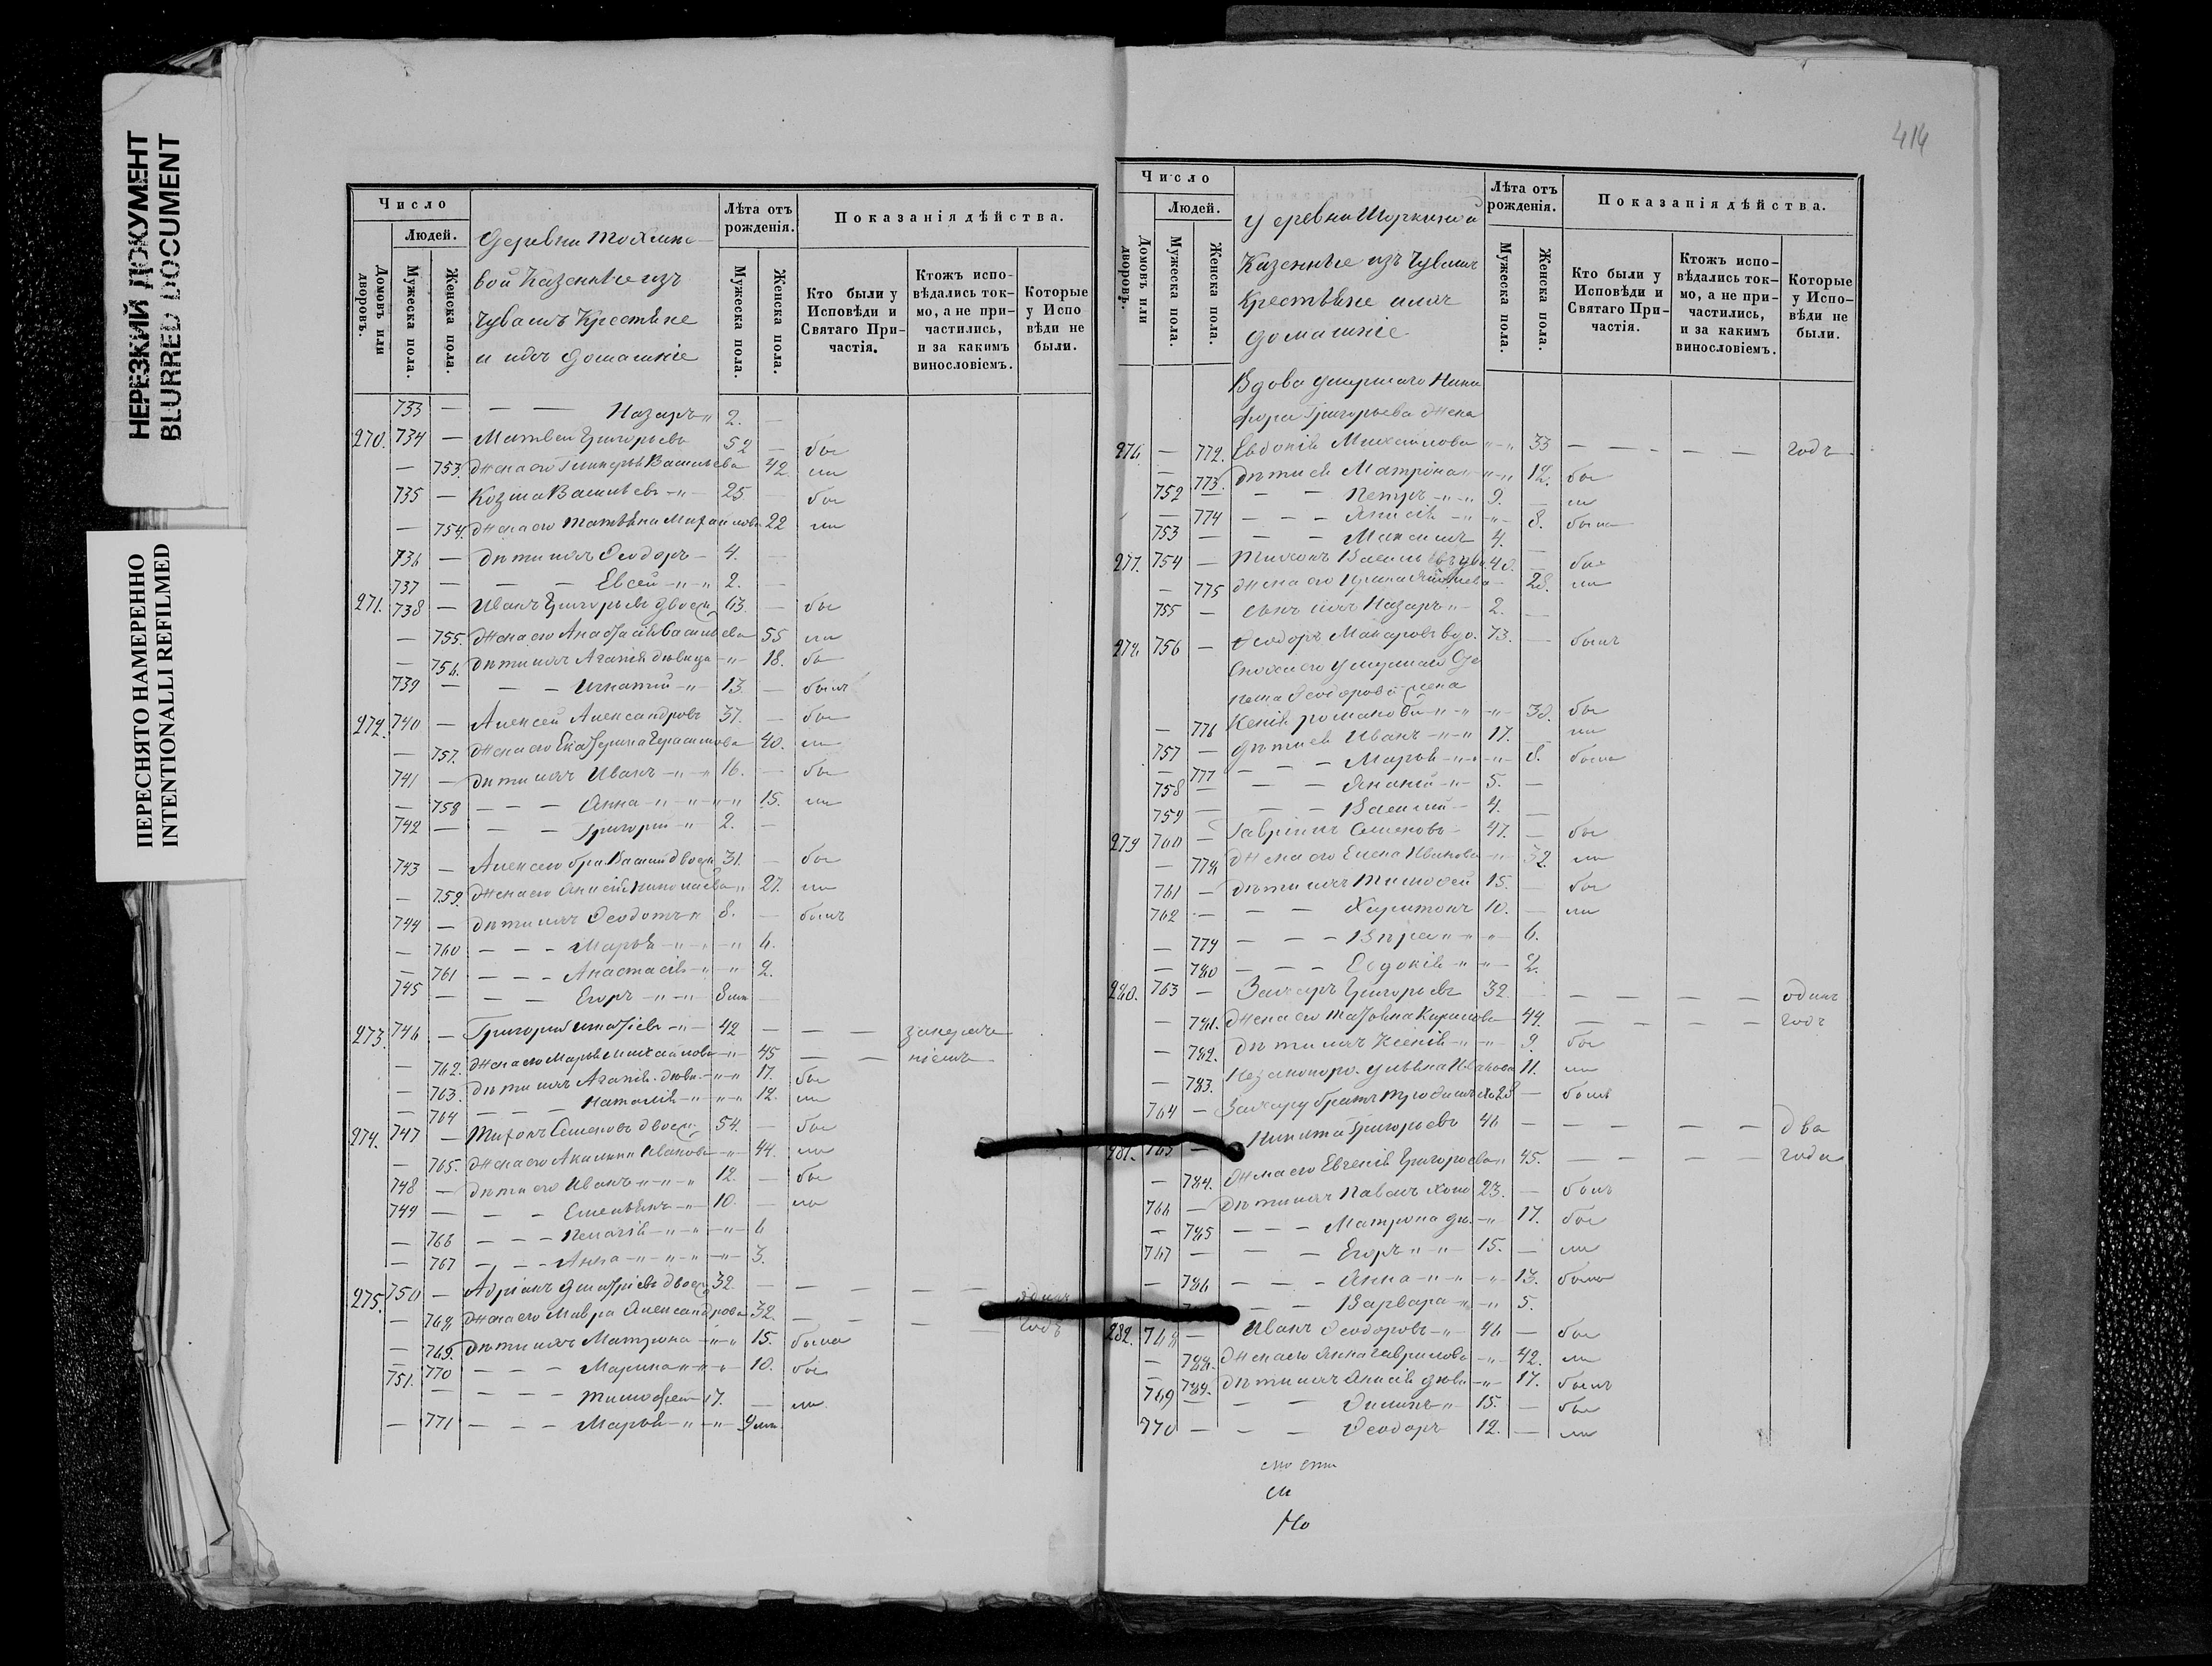 НЕРЕЗКИЙ ДОКУМЕНТ
BLURRED DOCUMENT
ПЕРЕСНЯТО НАМЕРЕННО
INTENTIONALLI REFILMED
Число
Людей.
Домовъ или дворовъ.
Мужеска пола.
Женска пола.
Деревни
вой Казенные изъ
Чувашъ Крестьяне
и ихъ домашніе
Лѣта отъ рожденія.
Мужеска пола.
Женска пола.
Показанія дѣйства.
Кто были у Исповѣди и Святаго Причастія.
Ктожъ исповѣдались токмо, а не причастились, и за какимъ винословіемъ.
Которые у Испо вѣди не были.
733 — — — Назаръ 2. —
270. 734 — Матвей Григорьевъ 52 — бы
— 753. жена его Васильева 42 ли
735 — Козма Васильевъ 25 бы
— 754. жена его Татьяна Михайлова 22 ли
736 — дѣти ихъ Ѳеодоръ 4. —
737 — — — Евсей 2. —
271. 738 — Иванъ Григорьевъ 63. — бы
— 755. жена его Анастасія Васильева 55 ли
— 756. дѣти ихъ Агапія дѣвица 18. бы
739 — — — Игнатій 13. — былъ
272. 740 — Алексей Александровъ 37. — бы
— 757. жена его Екатерина Герасимова 40. ли
741 — дѣти ихъ Иванъ 16. — бы
— 758 — — — Анна 15. ли
742 — — — Григорій 2. —
743 — Алексею бра. 31. — бы
— 759. жена его Анисія Николаева 27. ли
744 — дѣти ихъ Ѳеодотъ 8. — былъ
— 760 — — — Марья 6.
— 761 — — — Анастасія 2.
745 — — — Егоръ 8 —
273. 746 — Григорій 42 — — —
— 762. жена его Марья Михайлова 45 — —
— 763. дѣти ихъ Агапія дѣви. 17. бы
— 764 — — — Наталія 12. ли
274. 747 — Тихонъ Семеновъ 54. — бы
— 765. жена его Акилина Иванова 44. ли
748 — дѣти его Иванъ 12. — бы
749 — — — Емельянъ 10. — ли
— 766 — — — Пелагія 6
— 767 — — — Анна 3.
275. 750 — Адріанъ Дмитріевъ 32 — — — — одинъ
— 768 жена его Мавра Александрова 32. — — — годъ
— 769. дѣти ихъ Матрона 15. была
— 770 — — — Марина 10. бы
751. — — — Тимофей 7. — ли
— 771 — — — Марья 9
414
Число
Людей.
Домовъ или дворовъ.
Мужеска пола.
Женска пола.
Казенные изъ Чувашъ
Крестьяне и ихъ
домашніе
Лѣта отъ рожденія.
Мужеска пола.
Женска пола.
Показанія дѣйства.
Кто были у Исповѣди и Святаго Причастія.
Ктожъ исповѣдались токмо, а не причастились, и за какимъ винословіемъ.
Которые у Исповѣди не были.
Вдова умершаго Ники
фора Григорьева жена
276 — 772. Евдокія Михайлова 33 — — — — — годъ
— 773. дѣти ея Матрона 12. бы
752 — — — Петръ 9. — ли
— 774 — — — Анисія 8. была
753 — — — Максимъ 4. —
277. 754 — Тихонъ 40. — бы
— 775 жена его Ирина 28. ли
755 — сынъ ихъ Назаръ 2. —
278 756 — Ѳеодоръ Макаровъ вдо. 73. — былъ
Сноха его умершаго
Ѳеодорова жена
— 776 38. бы
757 — дѣти ея Иванъ 17. — ли
— 777 — — — Марья 8. была
758 — — — Ананій 5. —
759 — — — Василій 4. —
279 760 — Гавріилъ Семеновъ 47. — бы
— 778 жена его Елена Иванова 32. ли
761 — дѣти ихъ Тимофей 15. — бы
762 — — — Харитонъ 10. — ли
— 779 — — — Вѣра 6.
— 780 — — — Евдокія 2.
280. 763 — Захаръ Григорьевъ 32. — — — — одинъ
— 781. жена его 44. — — — — годъ
— 782. дѣти ихъ Ксенія 9. бы
— 783. Ульяна Иванова 11. ли
764 — Захару братъ 28 — былъ
281. 765 — Никита Григорьевъ 46 — — — — — два
— 784. жена его Евгенія Григорьева 45. — — — — года
766 — дѣти ихъ Павелъ 23. — былъ
— 785 — — — Матрона дѣ. 17. бы
767 — — — Егоръ 15. — ли
— 786 — — — Анна 13. была
— — Варвара 5.
282. 768 — Иванъ Ѳеодоровъ 46 — бы
— 788. жена его Анна Гаврилова 42. ли
— 789. дѣти ихъ Анисія дѣви. 17. былъ
769 — — — Филипъ 15. — бы
770 — — — Ѳеодоръ 12. — ли